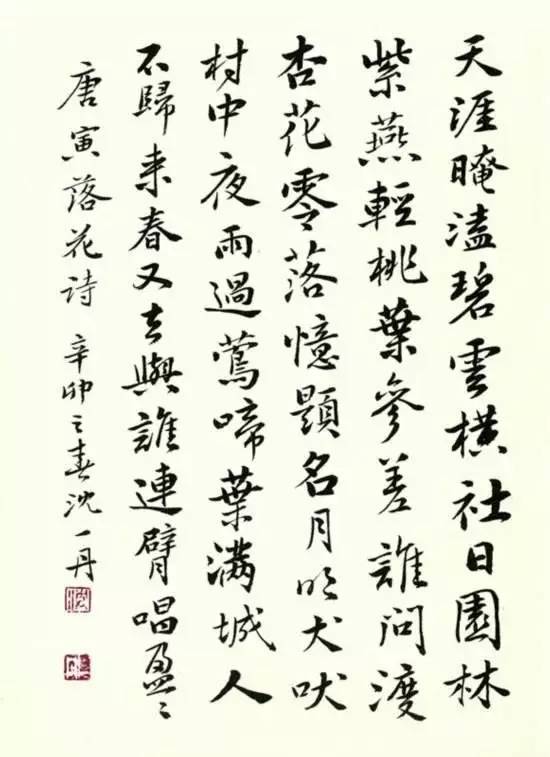 天涯晻溘碧雲橫社日園林
紫燕輕桃葉參差誰問渡
杏花零落憶題名月明犬吠
村中夜雨過鶯啼葉滿城人
不歸来春又去與誰連臂唱盈〻
唐寅落花詩 辛卯之春沈一丹